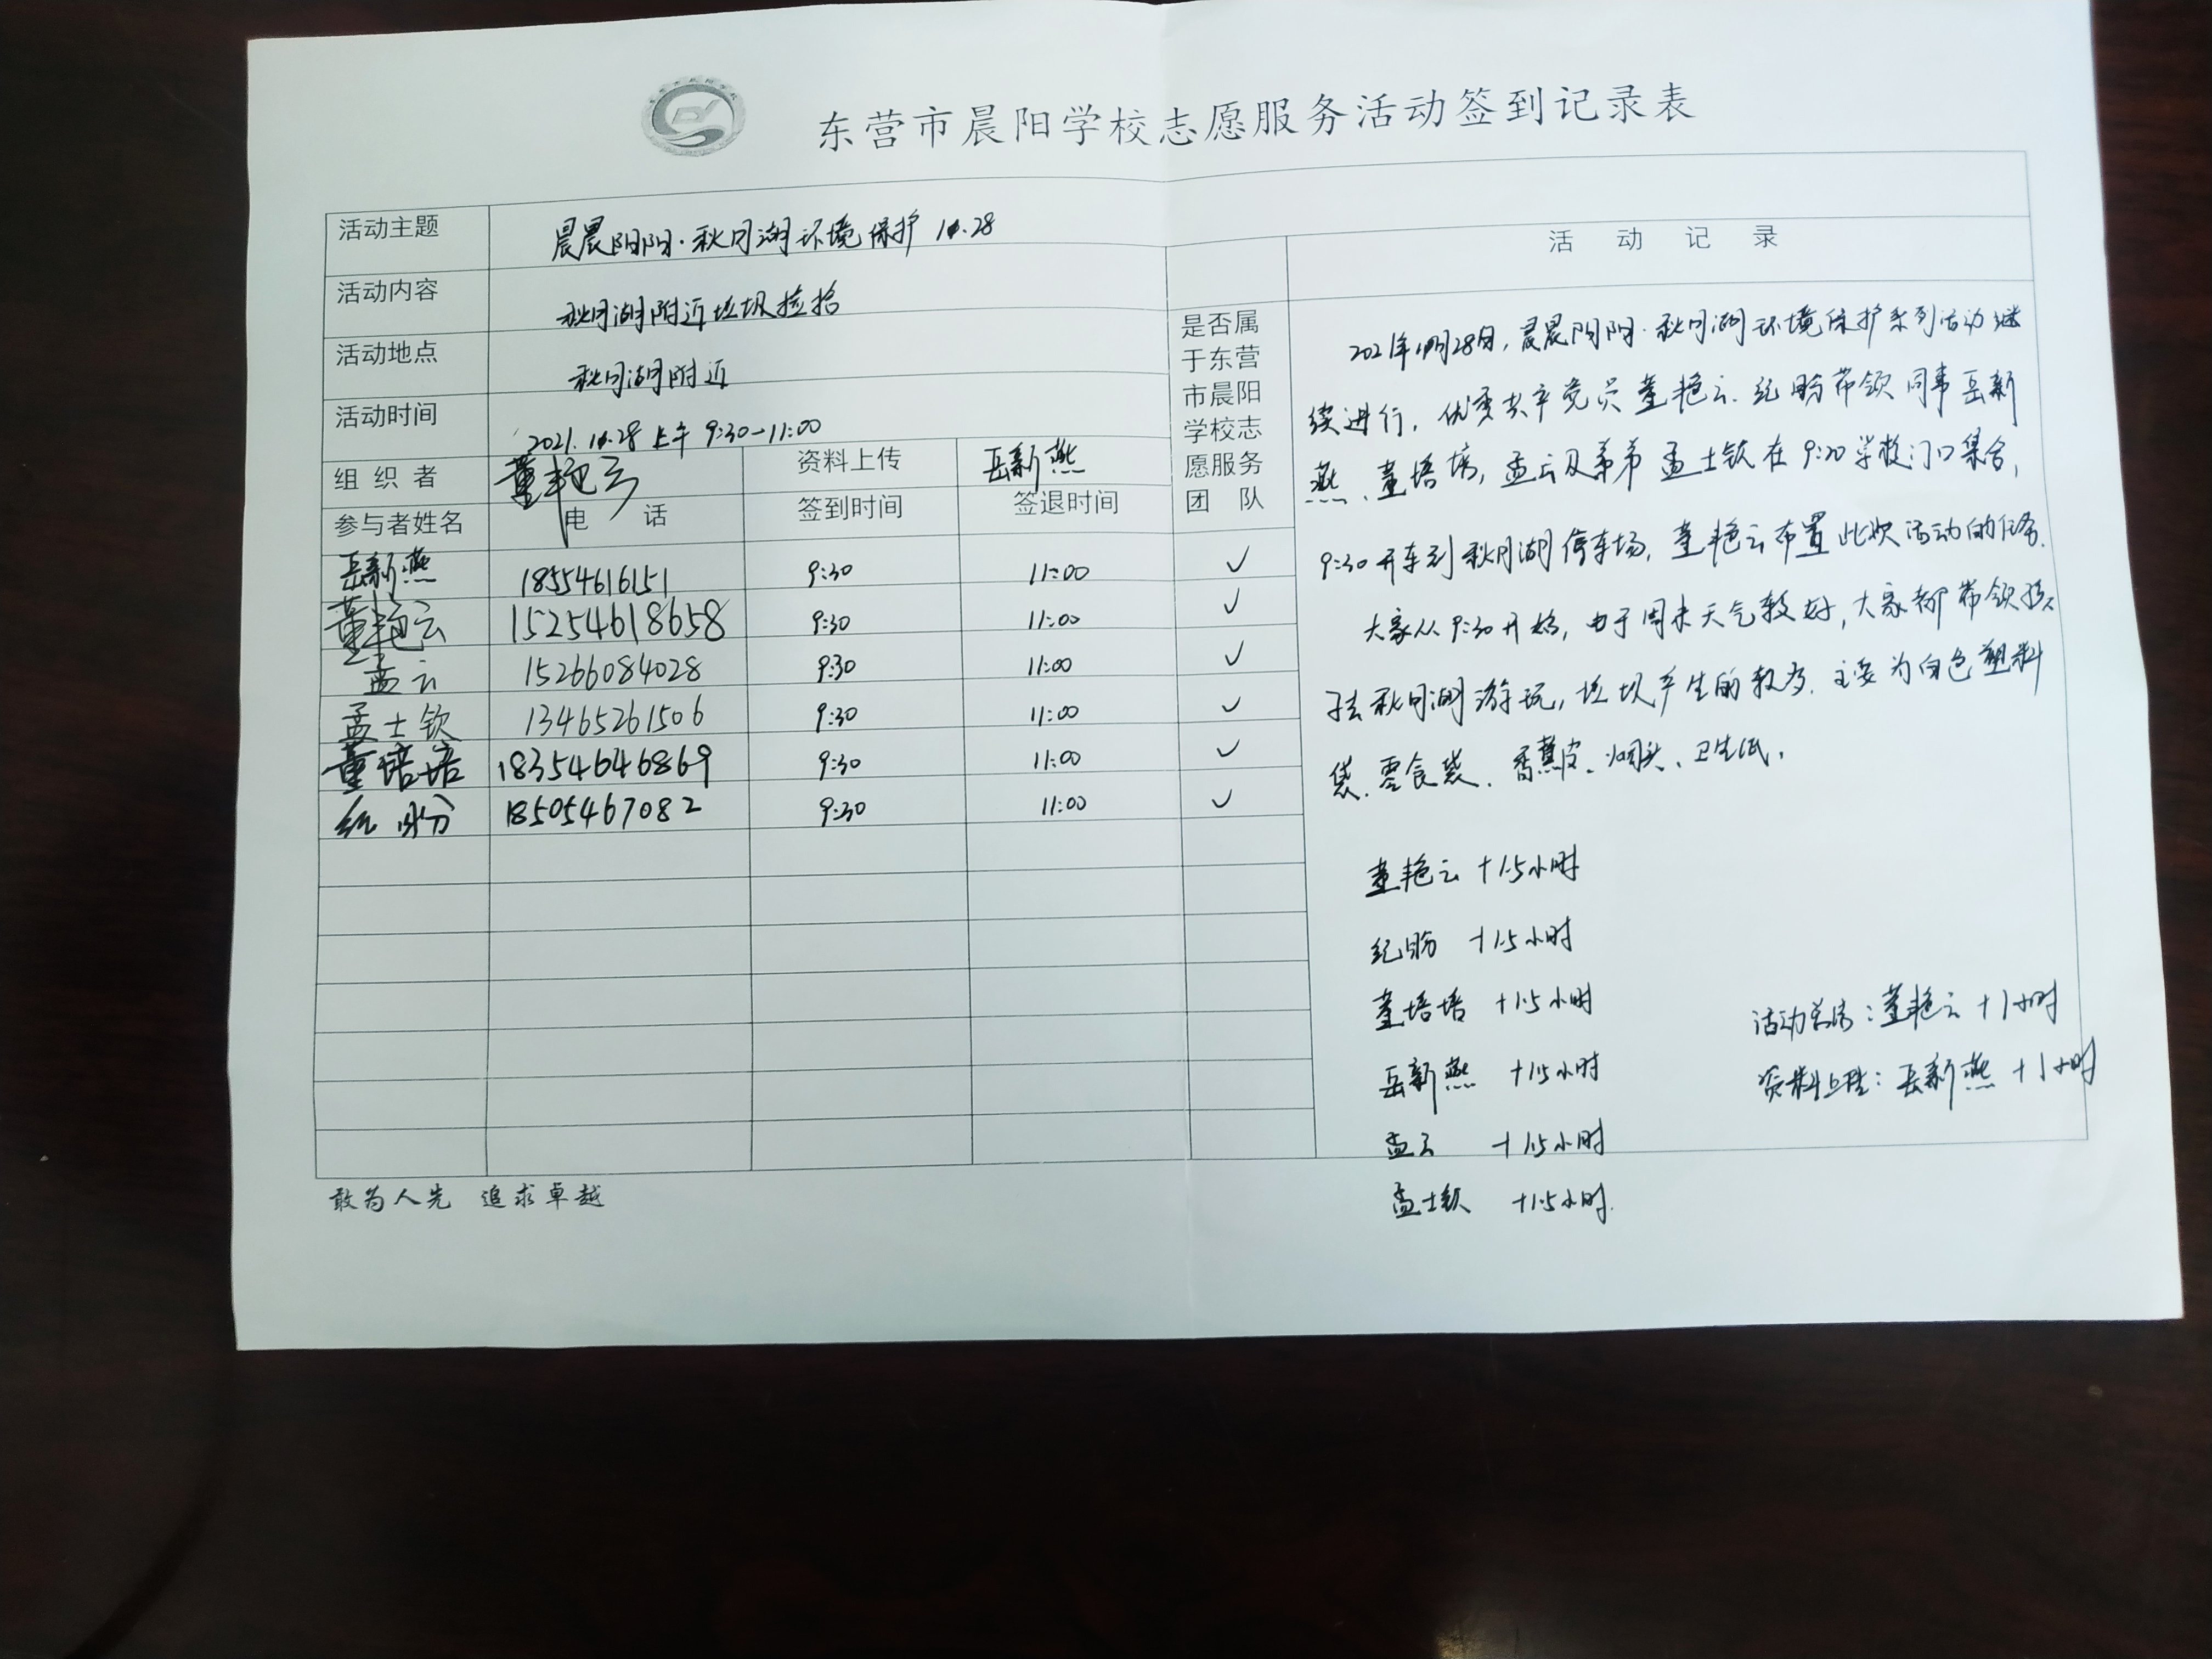 东营市晨阳学校志愿服务活动签到记录表
活动主题 晨晨阳阳·秋月湖环境保护
活动内容 秋月湖附近垃圾捡拾
活动地点 秋月湖附近
活动时间 上午 9:30-11:00
组织者 董艳云 资料上传 岳新燕
参与者姓名 电话 签到时间 签退时间 是否属于东营市晨阳学校志愿服务团队
岳新燕 18554616151 9:30 11:00 ✓
董艳云 15254618658 9:30 11:00 ✓
孟云 15266084028 9:30 11:00 ✓
孟士钦 13465261506 9:30 11:00 ✓
董培培 18354646869 9:30 11:00 ✓
纪盼 18505467082 9:30 11:00 ✓
活动记录
28日,晨晨阳阳·秋月湖环境保护系列活动继
续进行,优秀共产党员董艳云、纪盼带领同事岳新
燕、董培培,孟云及弟弟孟士钦在9:20学校门口集合,
9:30开车到秋月湖停车场,董艳云布置此次活动的任务.
大家从9:30开始,由于周末天气较好,大家都带领孩
子去秋月湖游玩,垃圾产生的较多.主要为白色塑料
袋、零食袋、香蕉皮、烟头、卫生纸.
董艳云 +1.5小时
纪盼 +1.5小时
董培培 +1.5小时
岳新燕 +1.5小时
孟云 +1.5小时
孟士钦 +1.5小时.
活动总结:董艳云+1小时
资料上传:岳新燕+1小时
敢为人先 追求卓越